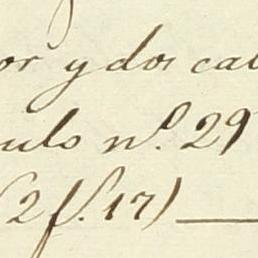 or y dos cal
ulo nº. 29
(2 f. 17)